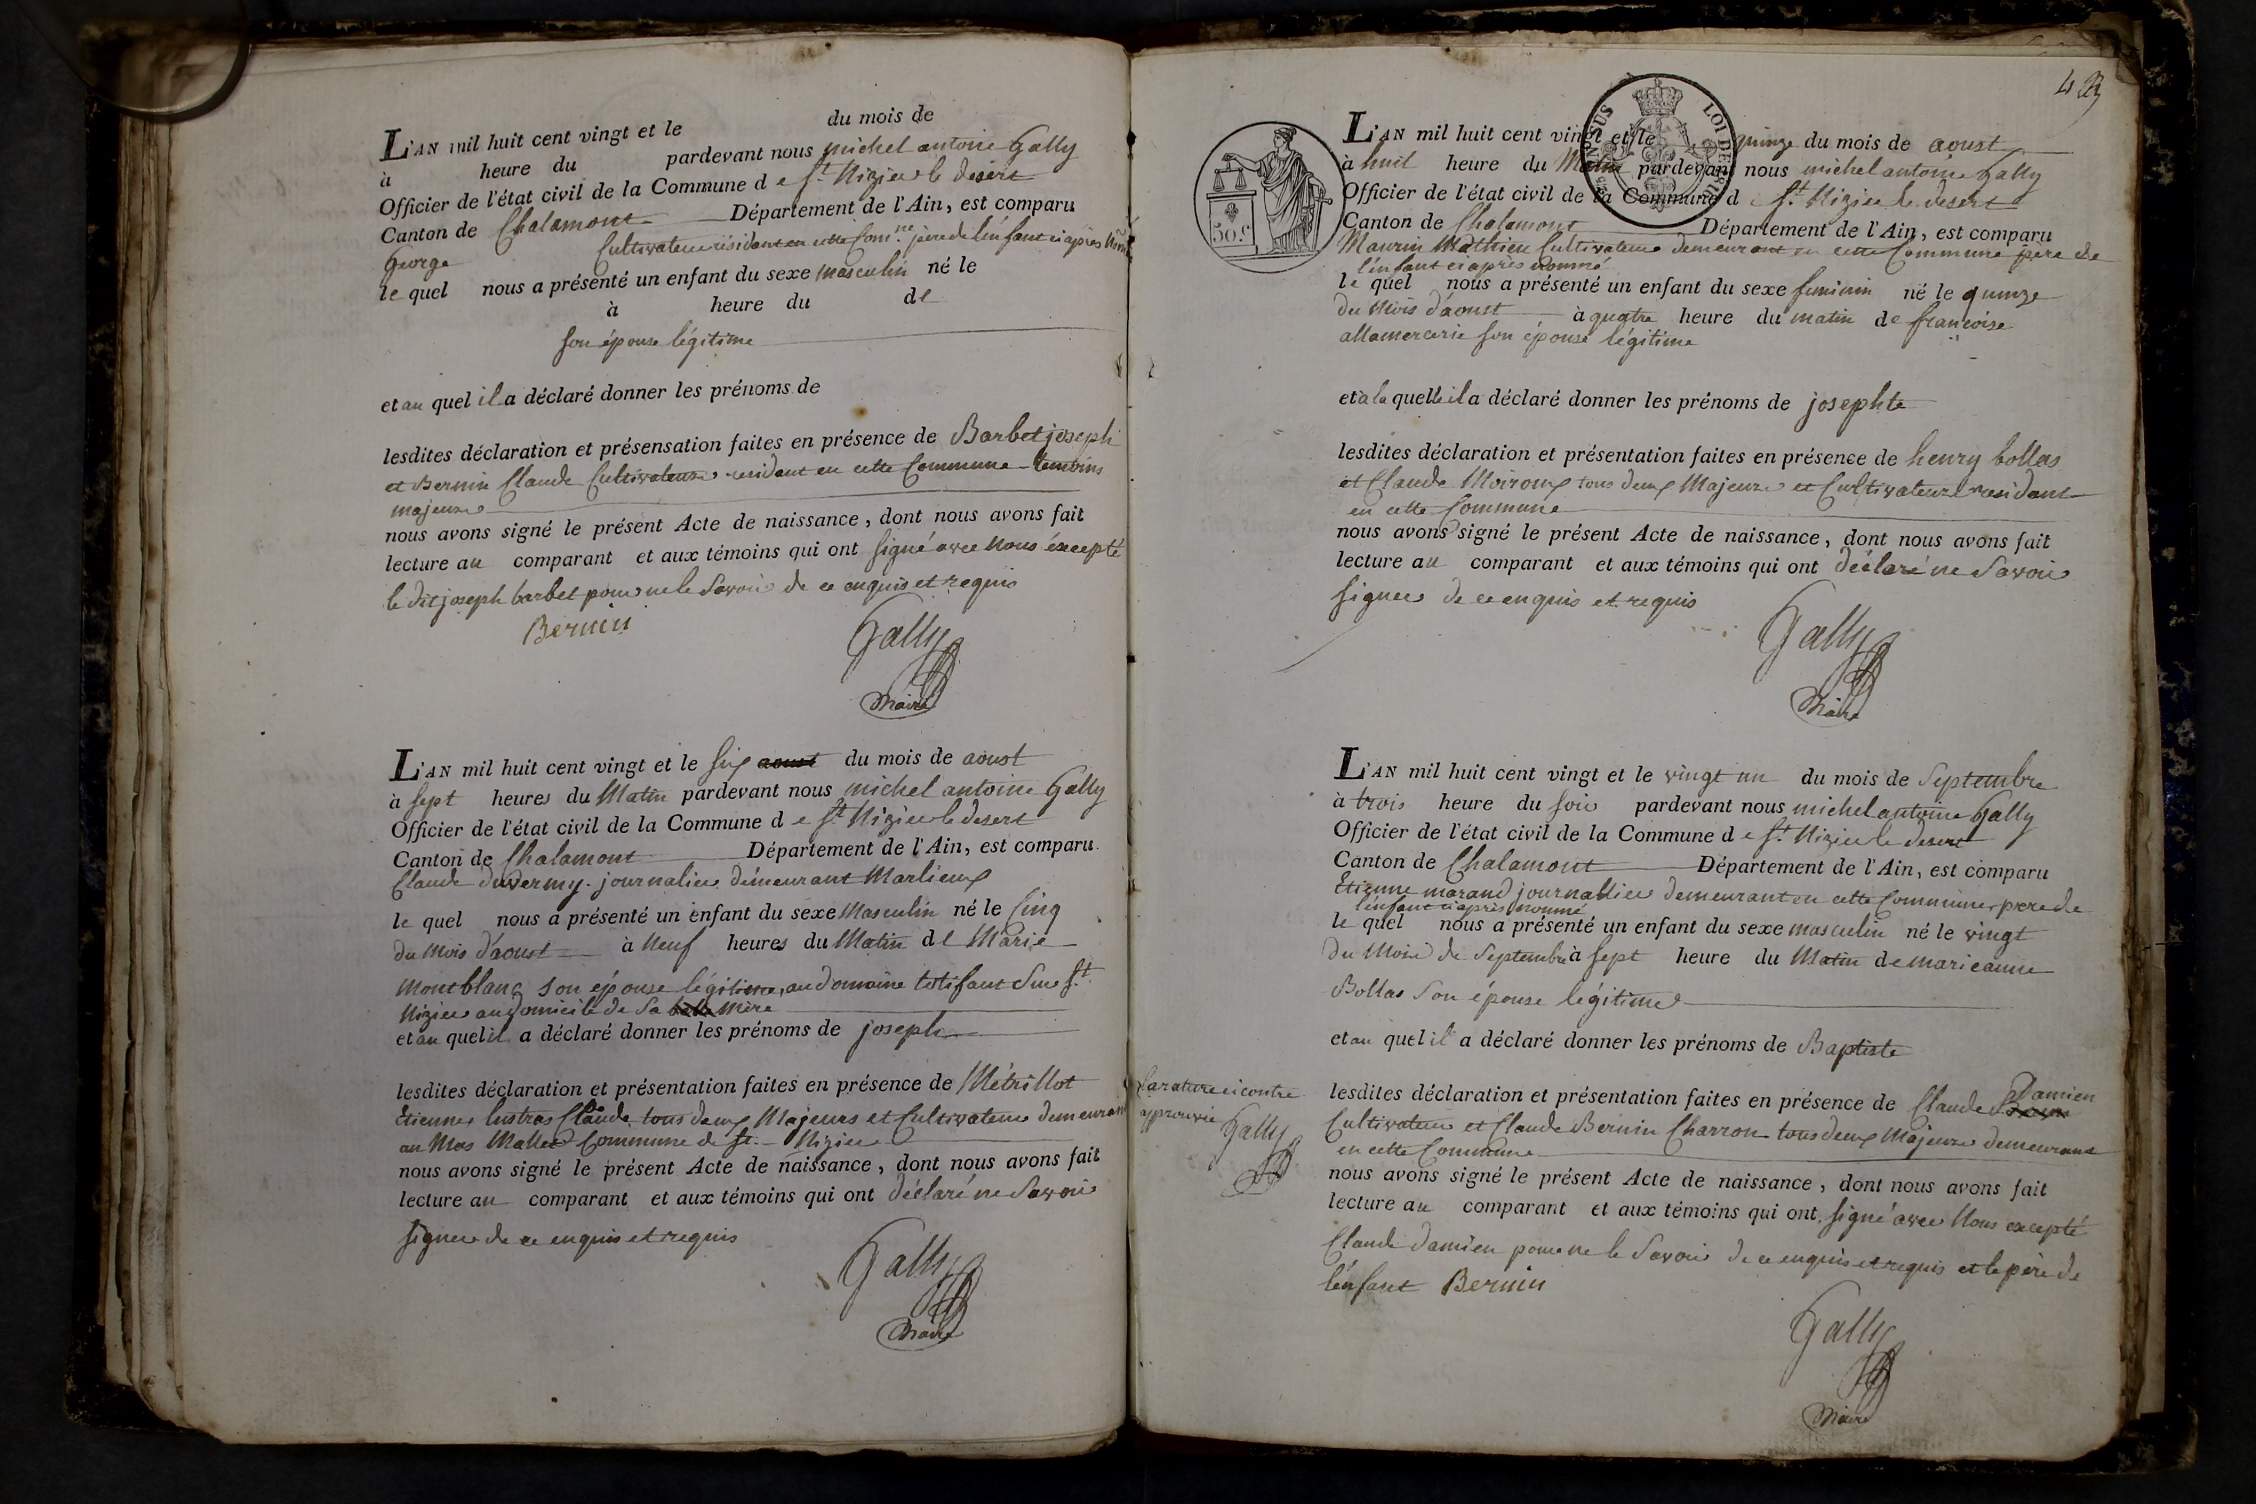 L'AN mil huit cent vingt et le du mois de
à heure du pardevant nous michel antoine Gally
Officier de l'état civil de la Commune d e St Nizier le desert
Canton de Chalamont Département de l'Ain, est comparu
george Cultivateur résidant en cette Comne père de l'enfant ci après
le quel nous a présenté un enfant du sexe masculin né le
à heure du de
son épouse légitime
et au quel il a déclaré donner les prénoms de
lesdites déclaration et présensation faites en présence de Barbet joseph
et Bernin Claude Cultivateurs residant en cette Commune temoins
majeurs
nous avons signé le présent Acte de naissance, dont nous avons fait
lecture au comparant et aux témoins qui ont signé avec Nous éxcepté
le dit joseph barbet pour ne le Savoir de ce enquis et requis
Bernin Gally
Maire
L'AN mil huit cent vingt et le six aoust du mois de aoust
à sept heures du Matin pardevant nous michel antoine Gally
Officier de l'état civil de la Commune d e St Nizier le desert
Canton de Chalamont Département de l'Ain, est comparu
Claude duvermy journalier démeurant Marlieux
le quel nous a présenté un enfant du sexe Masculin né le Cinq
du mois d'aoust à Neuf heures du Matin de Marie
Montblanc son épouse légitime, au domaine sur St
Nizier au domicile de Sa belle Mère
et au quel il a déclaré donner les prénoms de joseph
lesdites déclaration et présentation faites en présence de Métrillot
Etienne, lustras Claude tous deux Majeurs et Cultivateurs demeurant
au Mas Commune de St Nizier
nous avons signé le présent Acte de naissance, dont nous avons fait
lecture au comparant et aux témoins qui ont déclaré ne Savoir
signer de ce enquis et requis
Gally
Maire
43
INSUS LOI DE
50 c
L'AN mil huit cent vingt et le quinze du mois de aoust
à huit heure du Matin pardevant nous michel antoine Gally
Officier de l'état civil de la Commune d e St Nizier le desert
Canton de Chalamont Département de l'Ain, est comparu
Maurin Mathieu Cultivateur demeurant en cette Commune père de
l'enfant ci après nommé
le quel nous a présenté un enfant du sexe feminin né le quinze
du Mois d'aoust à quatre heure du matin de françoise
allamercerie son épouse légitime
et à la quelle il a déclaré donner les prénoms de josephte
lesdites déclaration et présentation faites en présence de henry bollas
et Claude Moiroux tous deux Majeurs et Cultivateurs residant
en cette Commune
nous avons signé le présent Acte de naissance, dont nous avons fait
lecture au comparant et aux témoins qui ont déclaré ne Savoir
signer de ce enquis et requis
Gally
Maire
L'AN mil huit cent vingt et le vingt un du mois de Septembre
à trois heure du soir pardevant nous michel antoine Gally
Officier de l'état civil de la Commune d e St Nizier le desert
Canton de Chalamont Département de l'Ain, est comparu
Etienne marand journallier demeurant en cette Commune père de
l'enfant ci après nommé
le quel nous a présenté un enfant du sexe masculin né le vingt
du Mois de Septembre à sept heure du Matin de marieanne
Bollas Son épouse légitime
et au quel il a déclaré donner les prénoms de Baptiste
La rature ci contre
approuvée
Gally
lesdites déclaration et présentation faites en présence de Claude Damien
Cultivateur et Claude Bernin Charron tous deux Majeurs demeurant
en cette Commune
nous avons signé le présent Acte de naissance, dont nous avons fait
lecture au comparant et aux témoins qui ont signé avec Nous excepté
Claude damien pour ne le Savoir de ce enquis et requis et le père de
l'énfant Bernin
Gally
Maire